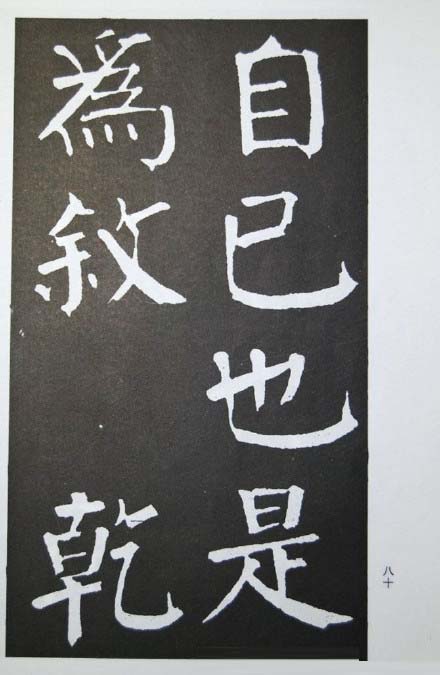 自已也是
為敘　乾
八十